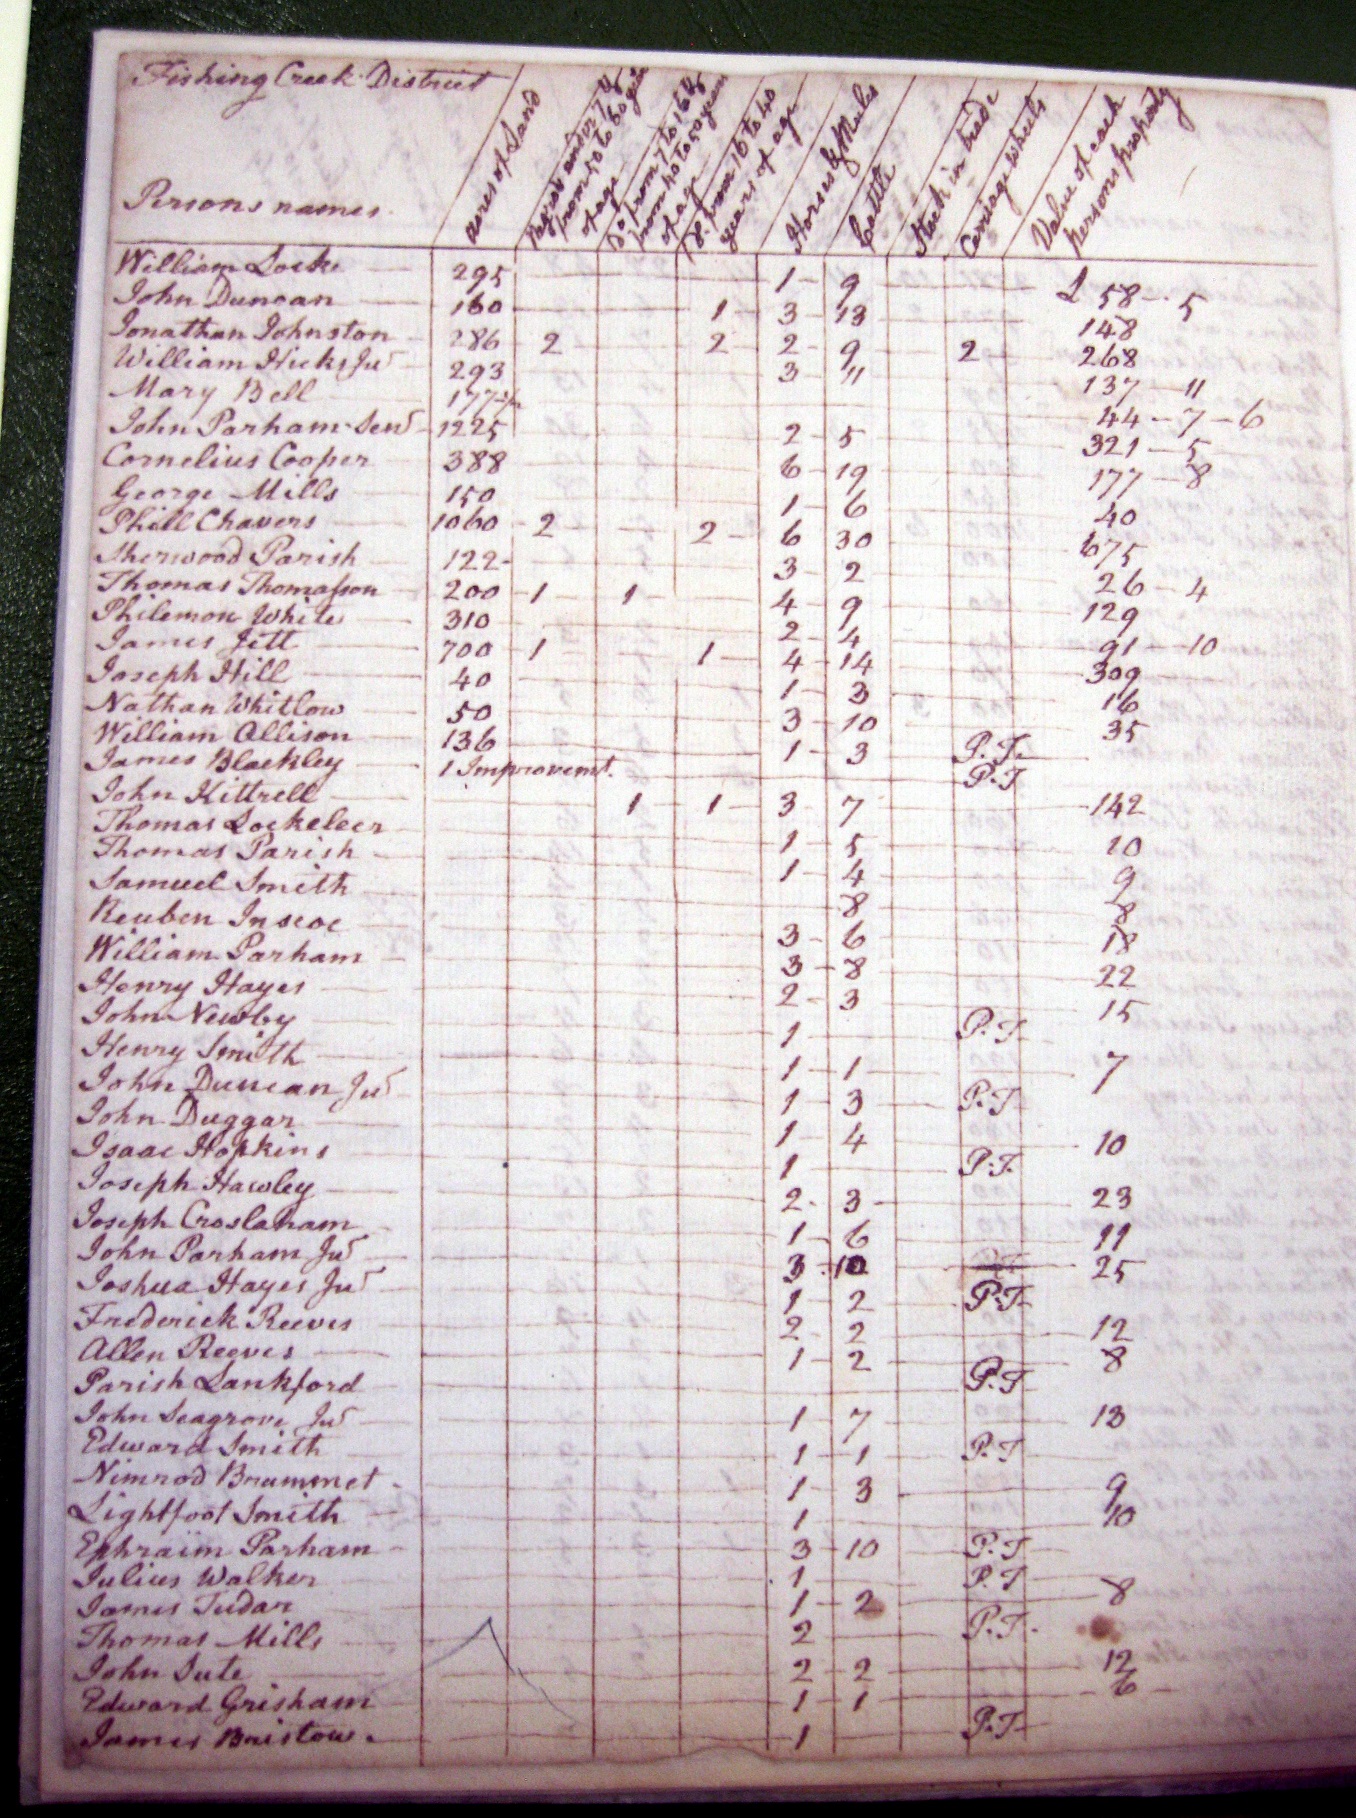 Fishing Creek District
Persons names.
acres of Land
Negroes under 7 & from 50 to 60 years of age
Do. from 7 to 16 & from 40 to 50 years of age
Do. from 16 to 40 years of age
Horses & Mules
Cattle
Stock in trade
Carriage wheels
Value of each persons property
William Locke 295 1 - 9 £ 58 - 5
John Duncan 160 1 3 - 13 148
Jonathan Johnston 286 2 2 2 - 9 2 268
William Hicks Jur 293 3 - 11 137 - 11
Mary Bell 177 1/2 44 - 7 - 6
John Parham Senr 1225 2 - 5 321 - 5
Cornelius Cooper 388 6 - 19 177 - 8
George Mills 150 1 - 6 40
Phill Chavers 1060 - 2 2 - 6 30 675
Sherwood Parish 122 - 3 - 2 26 - 4
Thomas Thomasson 200 - 1 1 4 - 9 129
Philemon White 310 2 - 4 91 - 10
James Jett 700 1 1 4 - 14 309
Joseph Hill 40 1 - 3 16
Nathan Whitlow 50 3 - 10 35
William Allison 136 1 - 3 P.T.
James Blackley 1 Improvemt. P.T
John Kittrell 1 1 3 - 7 142
Thomas Lockeleer 1 - 5 10
Thomas Parish 1 - 4 9
Samuel Smith 8 8
Reuben Inscoe 3 - 6 18
William Parham 3 - 8 22
Henry Hayes 2 - 3 15
John Newby 1 P.T.
Henry Smith 1 - 1 7
John Duncan Jur 1 - 3 P.T
John Duggar 1 - 4 10
Isaac Hopkins 1 P.T.
Joseph Hawley 2 - 3 23
Joseph Croslaham 1 - 6 11
John Parham Jur 3 10 25
Joshua Hayes Jur 1 - 2 P.T
Frederick Reeves 2 - 2 12
Allen Reeves 1 - 2 8
Parish Lankford P.T
John Seagrove Jur 1 - 7 13
Edward Smith 1 - 1 P.T
Nimrod Brummet 1 - 3 9
Lightfoot Smith 1 10
Ephraim Parham 3 - 10 P.T
Julius Walker 1 P.T
James Tudar 1 - 2 8
Thomas Mills 2 P.T.
John Sute 2 - 2 12
Edward Grisham 1 - 1 6
James Bristow 1 P.T